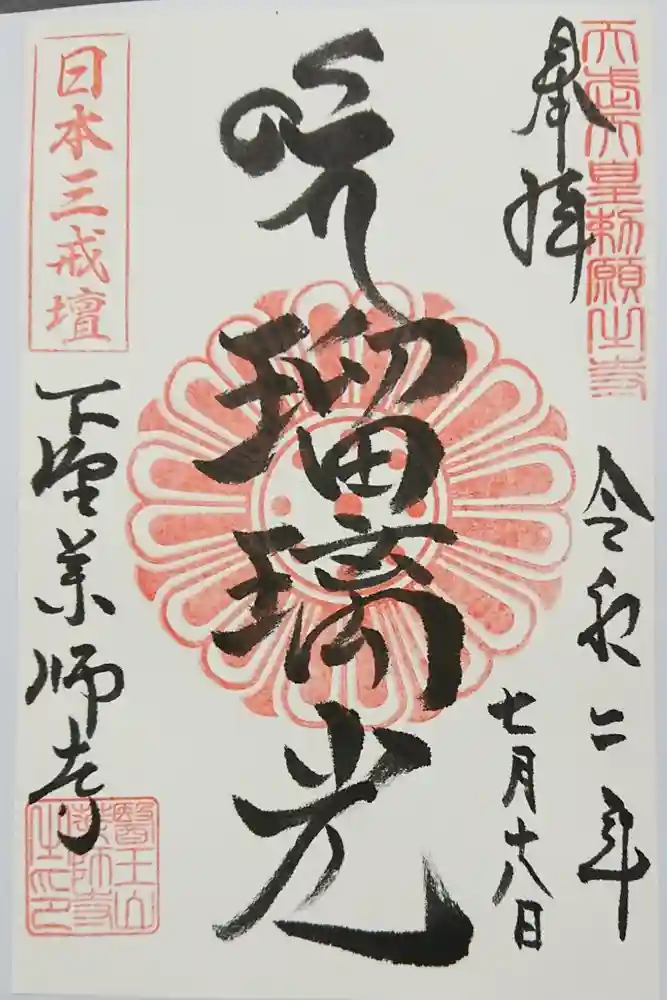 天武天皇勅願之寺
奉拝
令和二年
七月十八日
瑠璃光
日本三戒壇
下野薬師寺
醫王山
藥師寺
之印